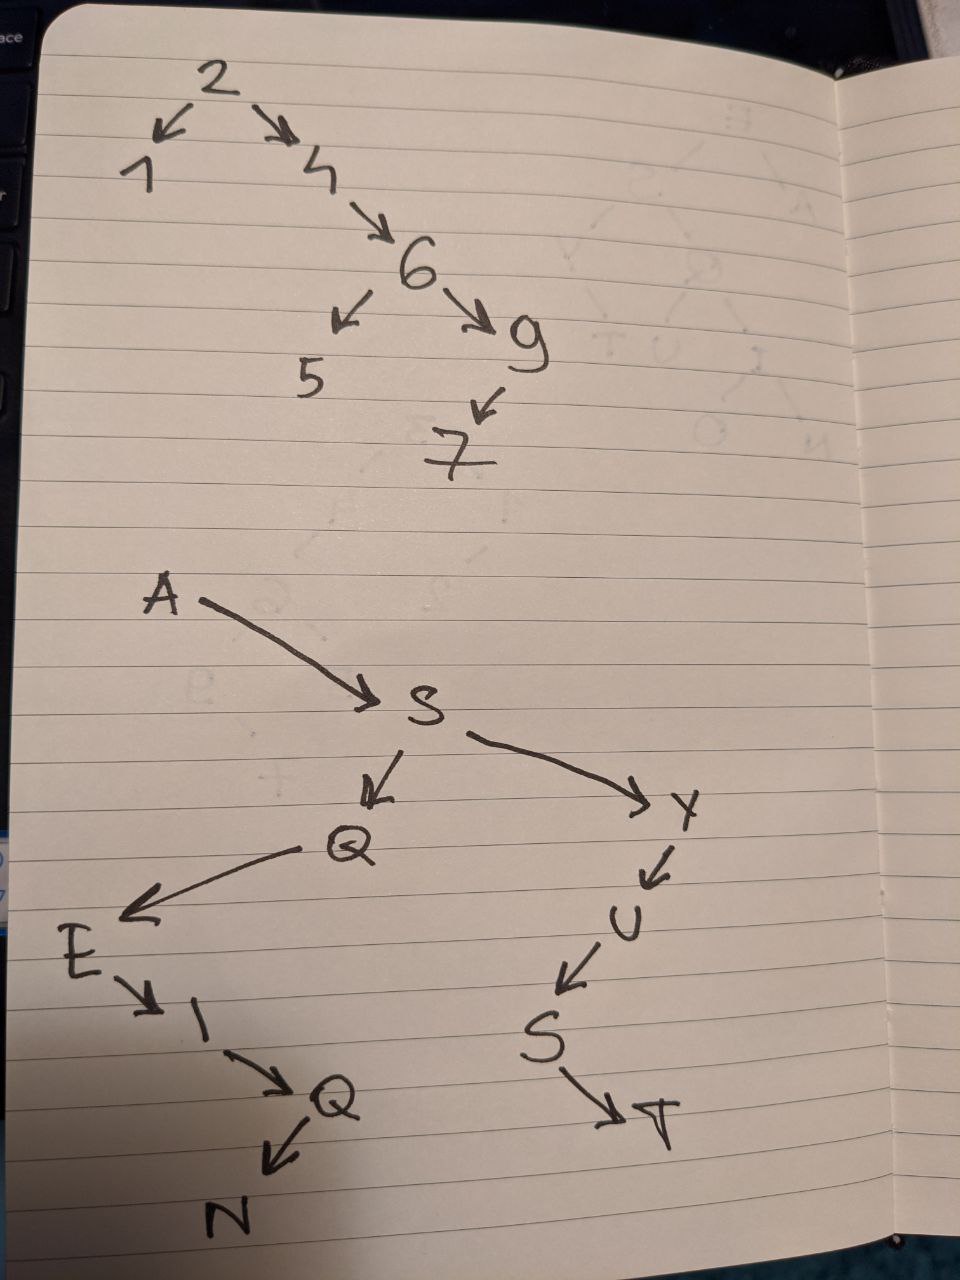 2
1 4
6
5 9
7
A
S
Q Y
E U
I S
Q T
N